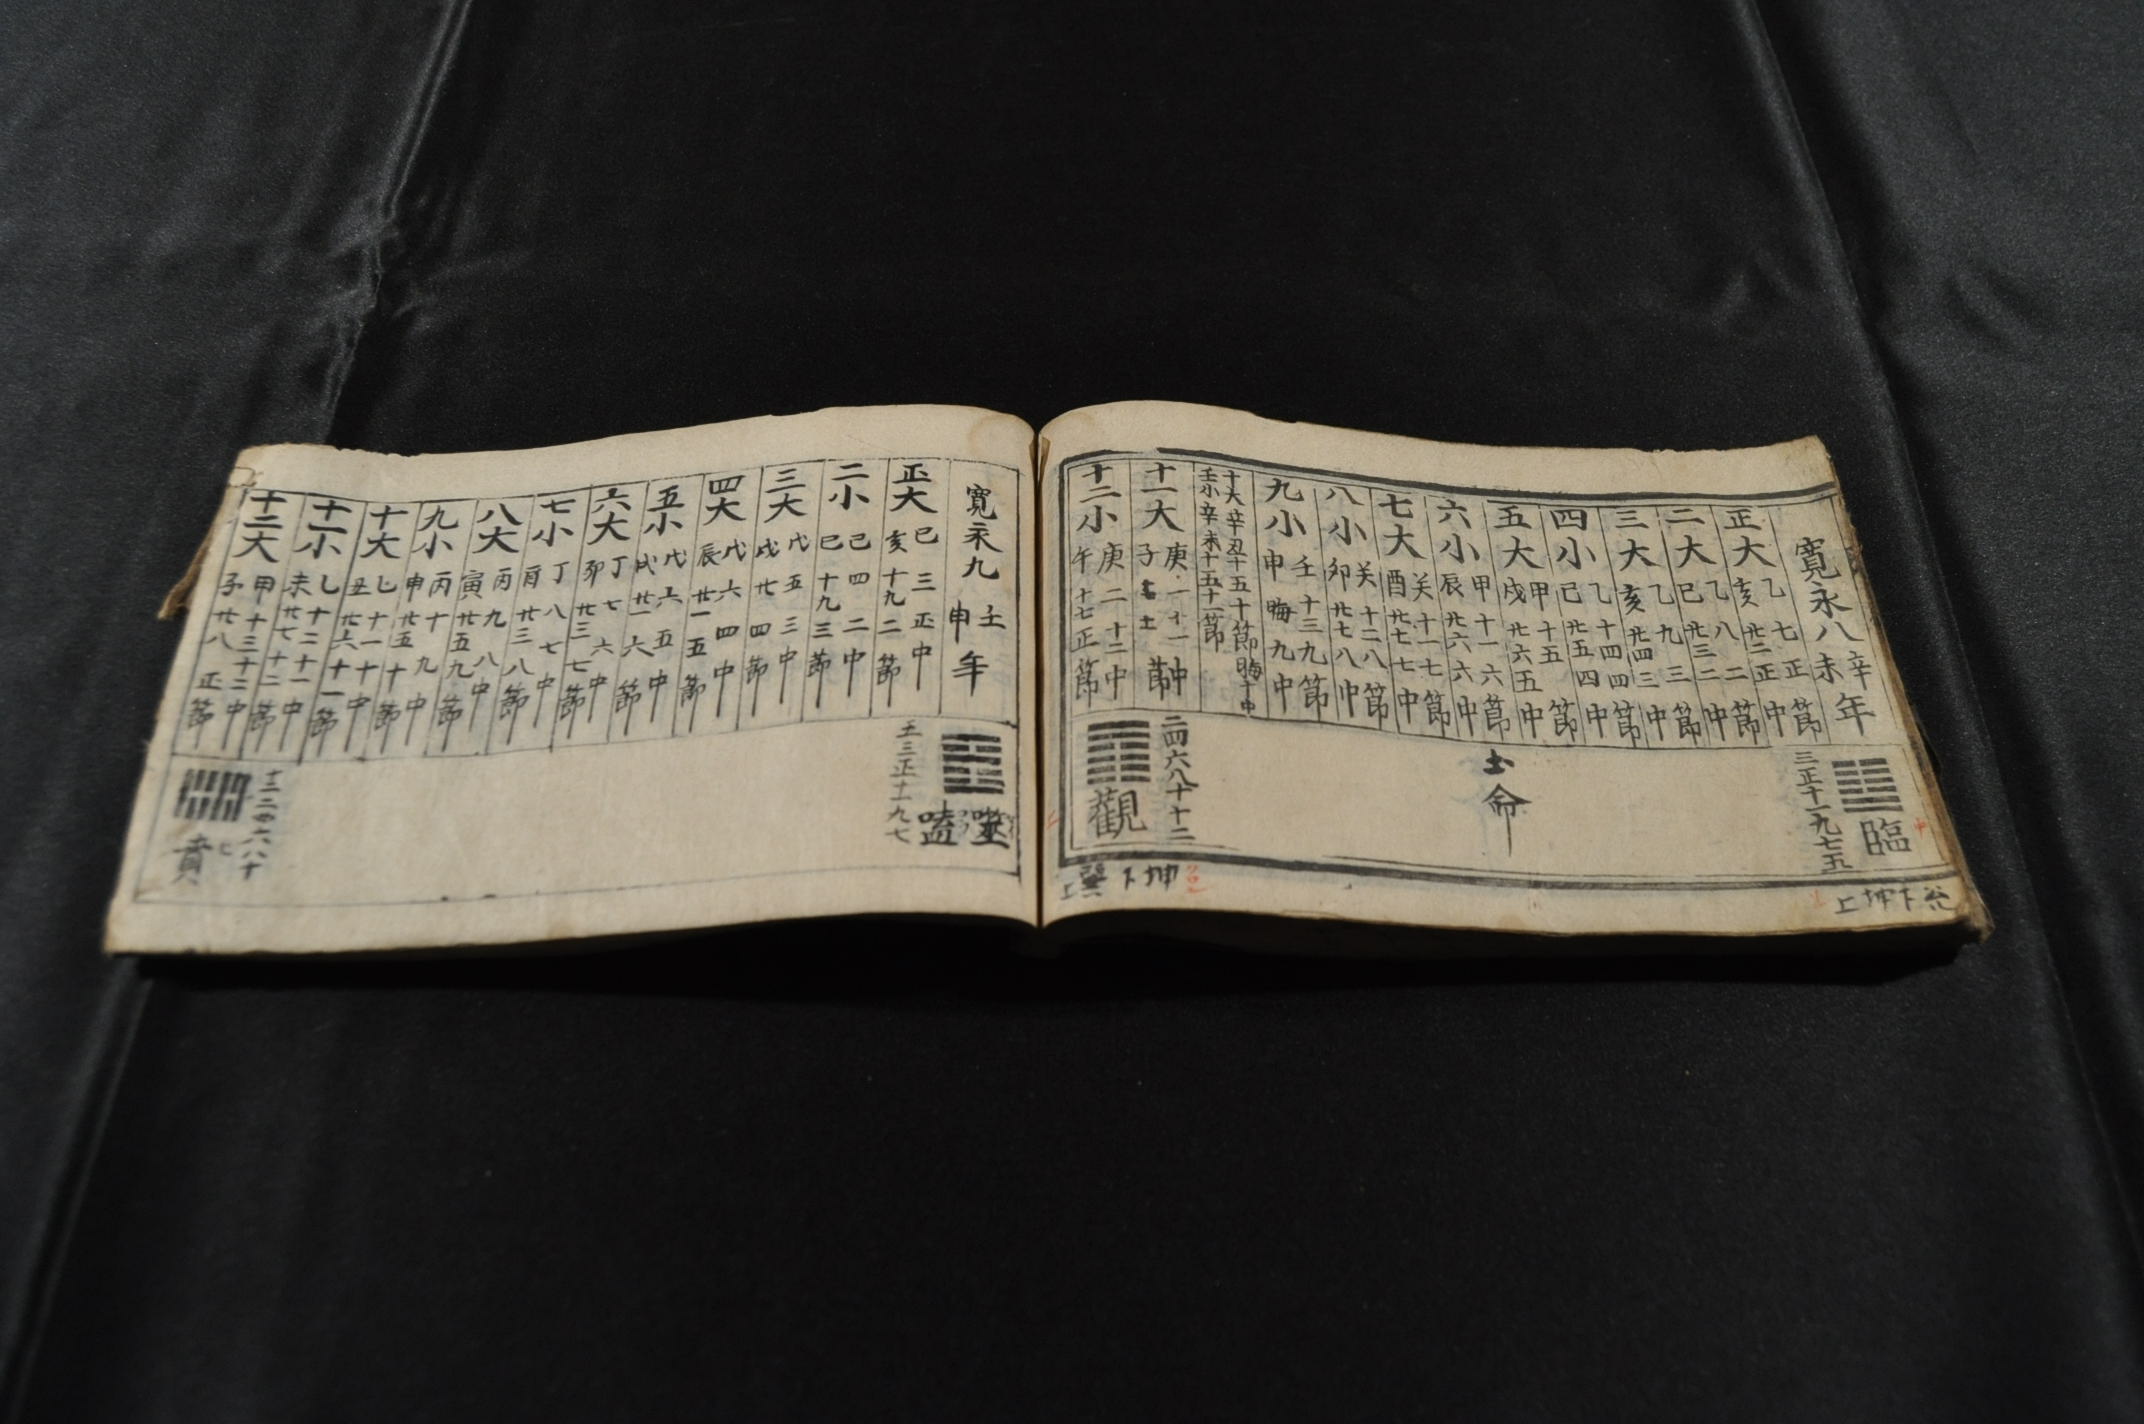 寛永八 辛未年
正大 乙亥 七 正 節 廿二 正 中
二大 乙巳 八 二 節 廿三 二 中
三大 乙亥 九 三 節 廿四 三 中
四小 乙巳 十四 四 節 廿五 四 中
五大 甲戌 十五 五 中
廿六 五
六小 甲辰 十一 六 節 廿六 六 中
七大 癸酉 十一 七 節 廿七 七 中
八小 癸卯 十二 八 節 廿七 八 中
九小 壬申 十三 九 節 晦 九 中
十大 辛丑 十五 十節 晦十中
壬小 辛未 十五 十一節
十一大 庚子 十一 節 中
十二小 庚午 二 十二 中 十七 正 節
臨
三正十一九七五
土命
二四六八十十二
観
上坤下
上巽下坤
寛永九 壬申年
正大 己亥 三 正 中 十九 二 節
二小 己巳 四 二 中 十九 三 節
三大 戊戌 五 三 中 廿 四 節
四大 戊辰 六 四 中 廿一 五 節
五小 戊戌 六 五 中 廿一 六 節
六大 丁卯 七 六 中 廿三 七 節
七小 丁酉 八 七 中 廿三 八 節
八大 丙寅 九 八 中 廿五 九 節
九小 丙申 十 九 中 廿五 十 節
十大 乙丑 十一 十 中 廿六 十一 節
十一小 乙未 十二 十一 中 廿七 十二 節
十二大 甲子 十三 十二 中 廿八 正 節
噬嗑
五三正十一九七
十二二四六八十
賁